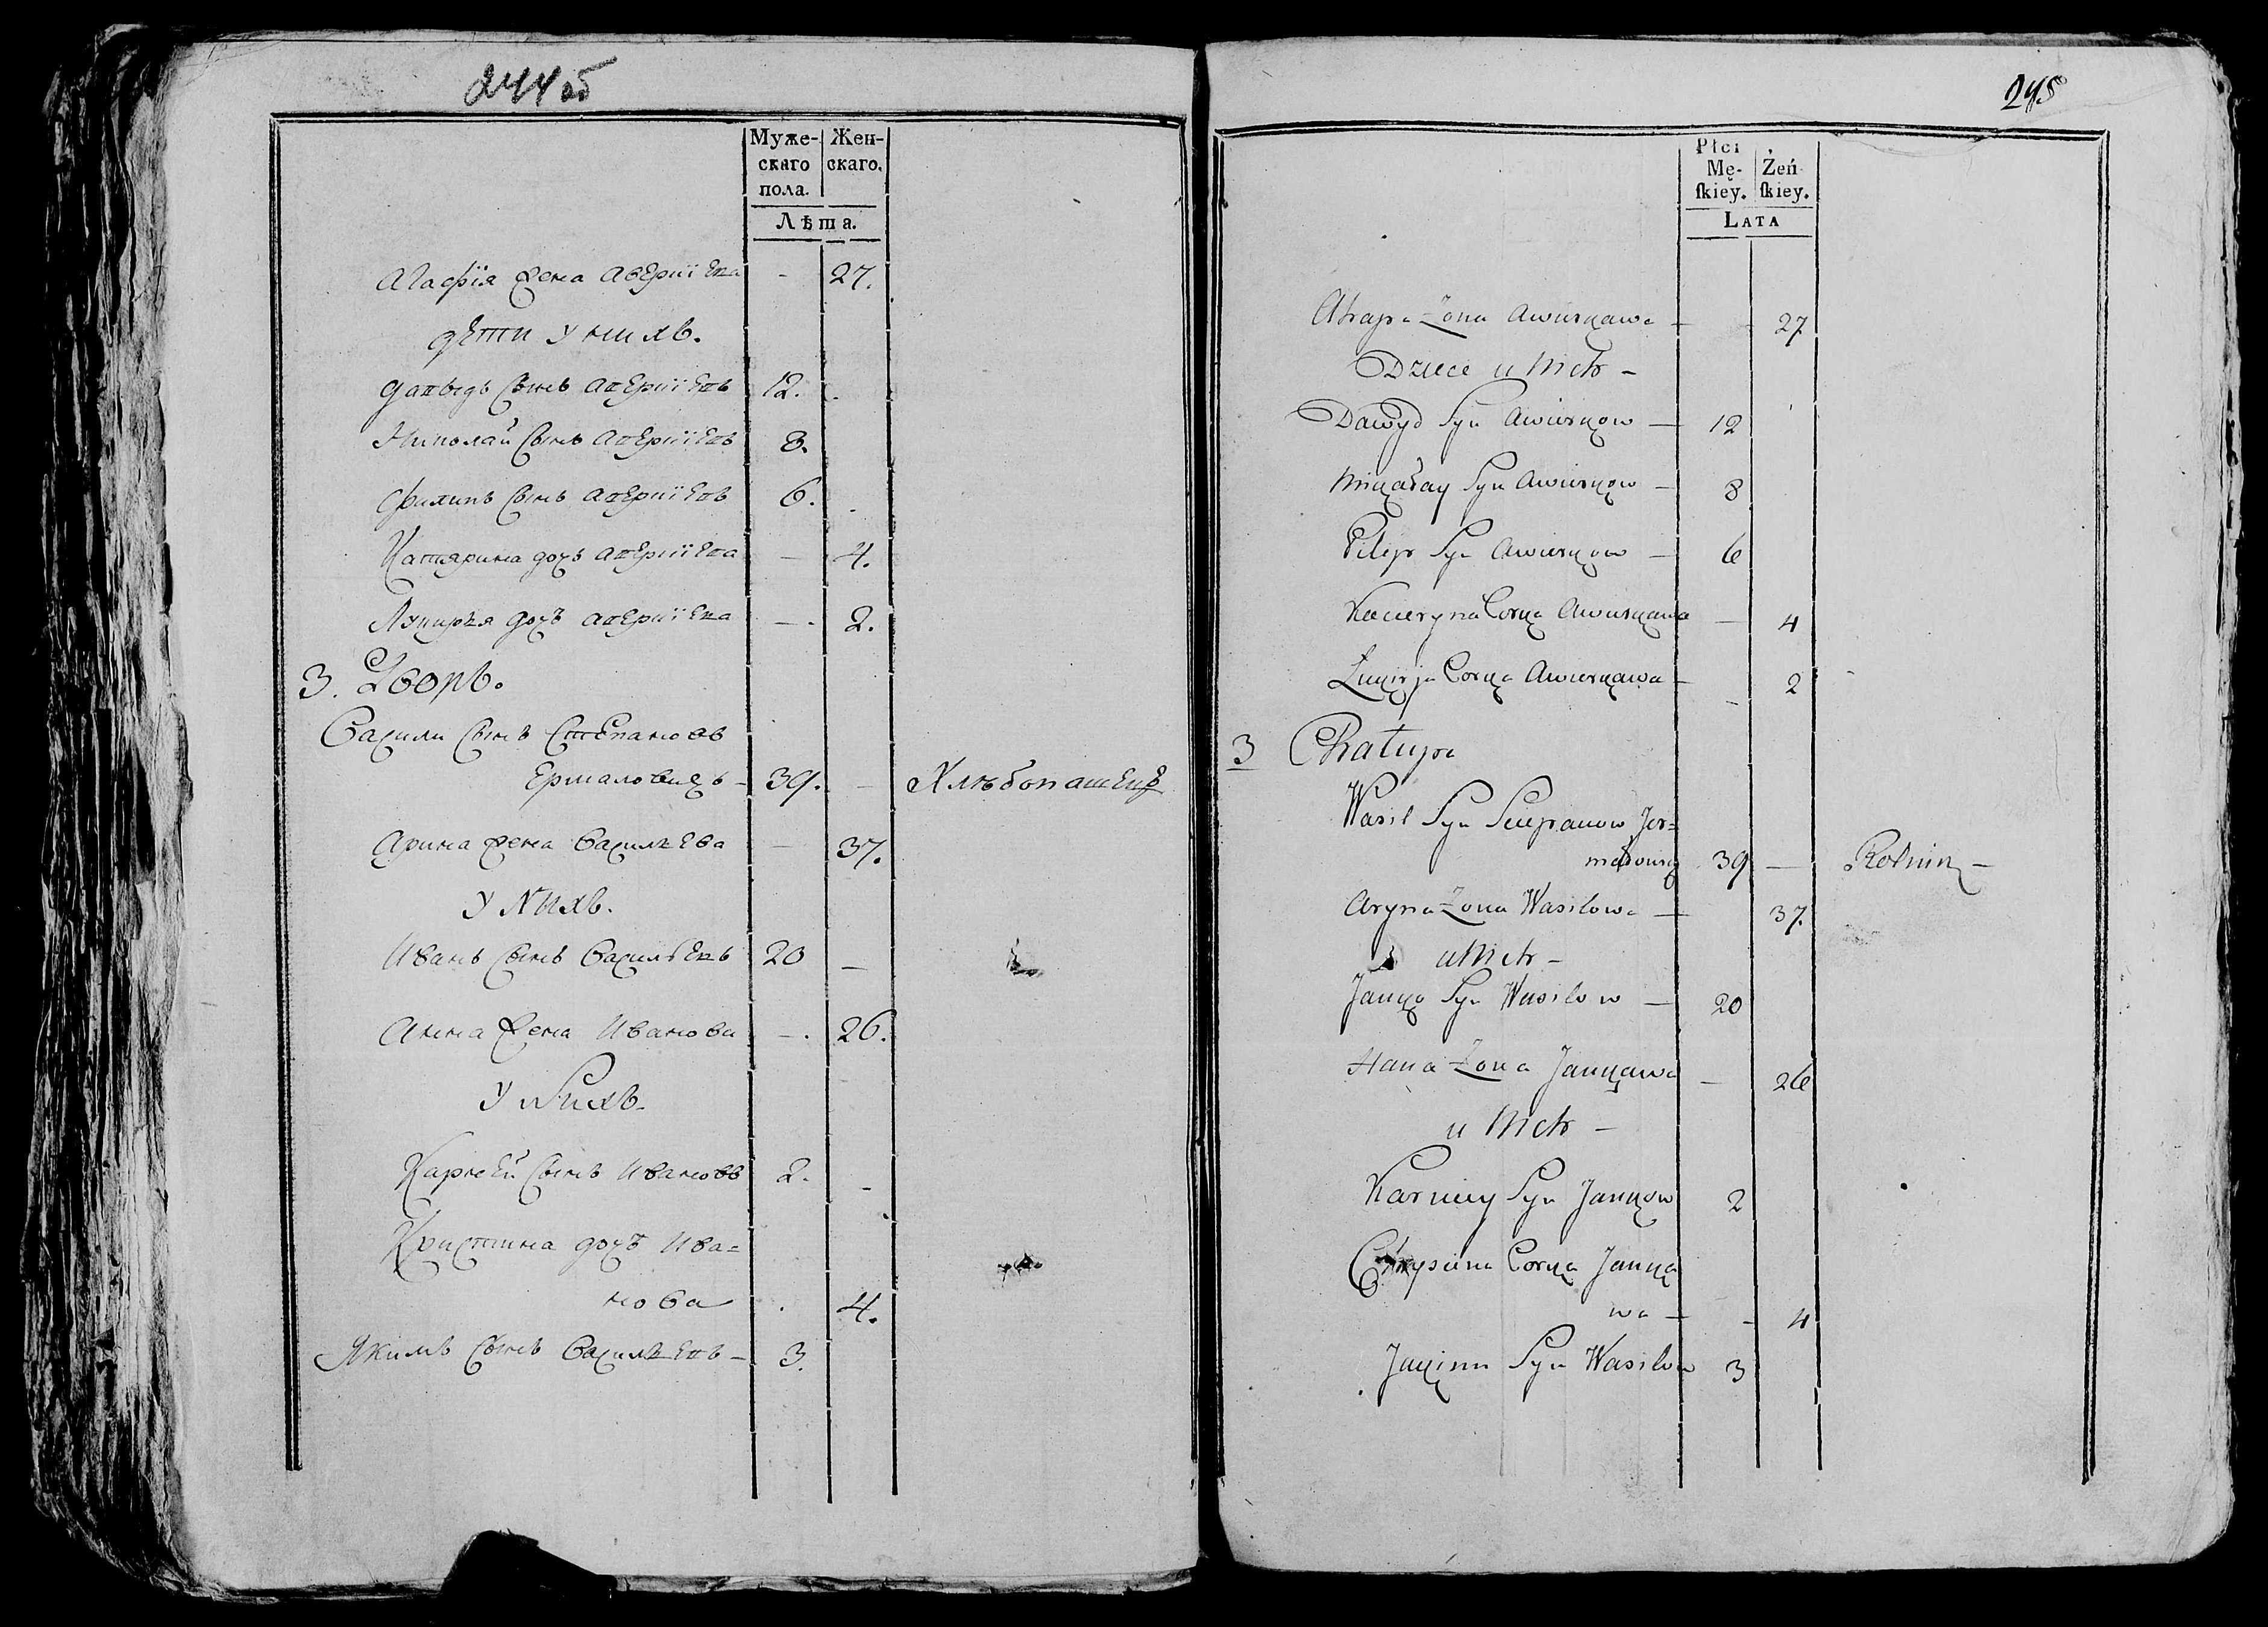 244 об
Муже- Жен-
скаго скаго.
пола.
Лѣта.
Агафія жена Аверіива - 27.
дети у нихъ.
Давыдъ сынъ Аверіивъ 12.
Николай сынъ Аверіивъ 8.
Филипъ сынъ Аверіивъ 6.
Катярина дочъ Аверіива — 4.
Лукиря дочъ Аверіива — 2.
3. Дворъ.
Васили сынъ Степановъ
Ермаловичъ - 39. — Хлѣбопашецъ
Арина жена Васильева — 37.
у нихъ.
Иванъ сынъ Васильевъ 20 —
Анна жена Иванова — 26.
у нихъ.
Карней сынъ Ивановъ 2. -
Кристина дочъ Ива=
нова . 4.
Якимъ сынъ Васильевъ - 3.
245
Płci
Mę- Żeń
skiey. skiey.
LATA
Ahapa Żona Awierkawa — 27
Dziece u Nich -
Dawyd Syn Awierkow — 12
Mikałay Syn Awierkow - 8
Pilip Syn Awierkow - 6
Kacieryna Corka Awierkawa — 4
Łukirja Corka Awierkawa - 2
3 Chatupa
Wasil Syn Sciepanow Jer=
małowicz 39 — Rolnik -
Aryna Żona Wasilowa — 37.
u Nich -
Janko Syn Wasilow — 20
Hana Żona Jankawa — 26
u Nich -
Karniey Syn Jankow 2
Chryscina Corka Janka
wa — - 4
Jakim Syn Wasilow 3